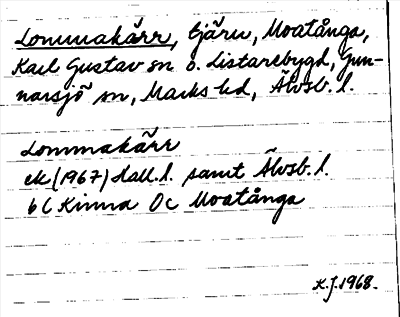 Lommakärr, tjärn, Moatånga,
Karl Gustav sn o. Listarebygd, Gun-
narsjö sn, Marks hd, Älvsb. l.
Lommakärr
ek (1967) Hall. l. samt Älvsb. l.
6C Kinna 0c Moatånga
K.J. 1968.